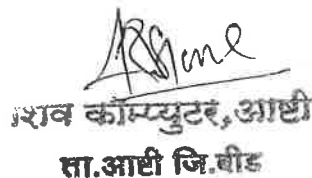 शिव कॉम्प्युटर, आष्टी
ता.आष्टी जि.बीड